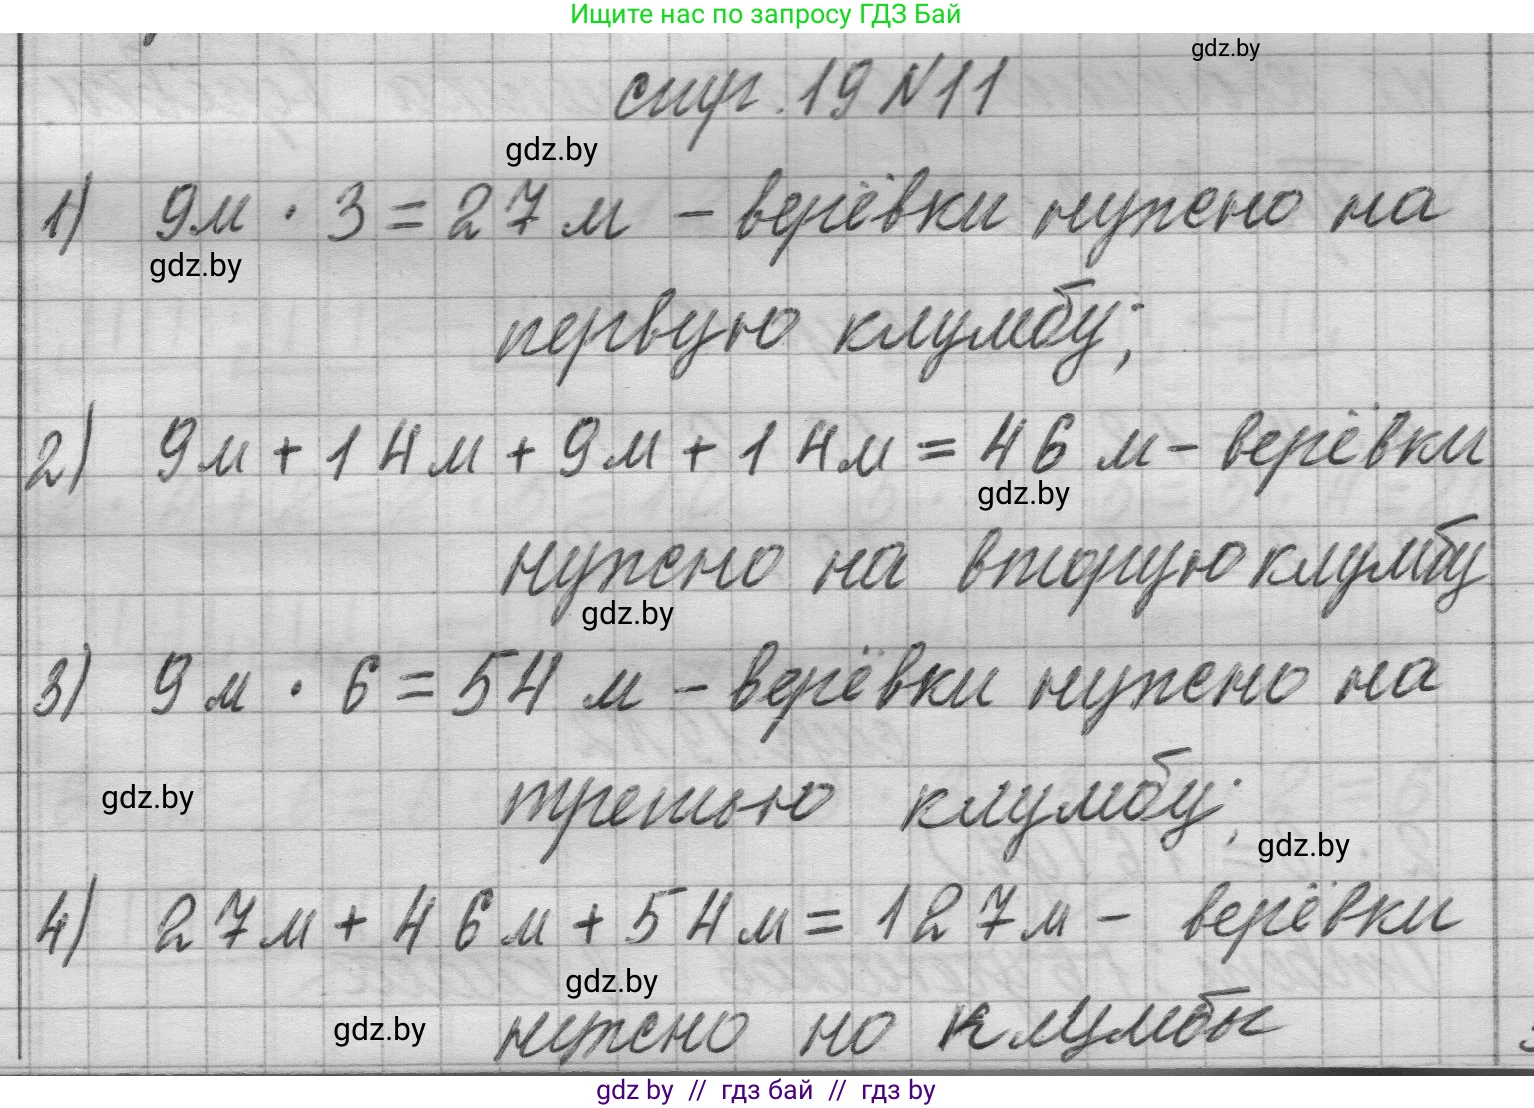 Ищите нас по запросу ГДЗ Бай
gdz.by
стр. 19 №11
gdz.by
1) 9м · 3 = 27 м – верёвки нужно на
gdz.by
первую клумбу;
2) 9м + 14м + 9м + 14м = 46 м – верёвки
gdz.by
нужно на вторую клумбу
gdz.by
3) 9 м · 6 = 54 м – верёвки нужно на
gdz.by
третью клумбу;
gdz.by
4) 27м + 46м + 54м = 127м – верёвки
gdz.by
gdz.by
нужно но клумбы
gdz by // гдз бай // gdz by